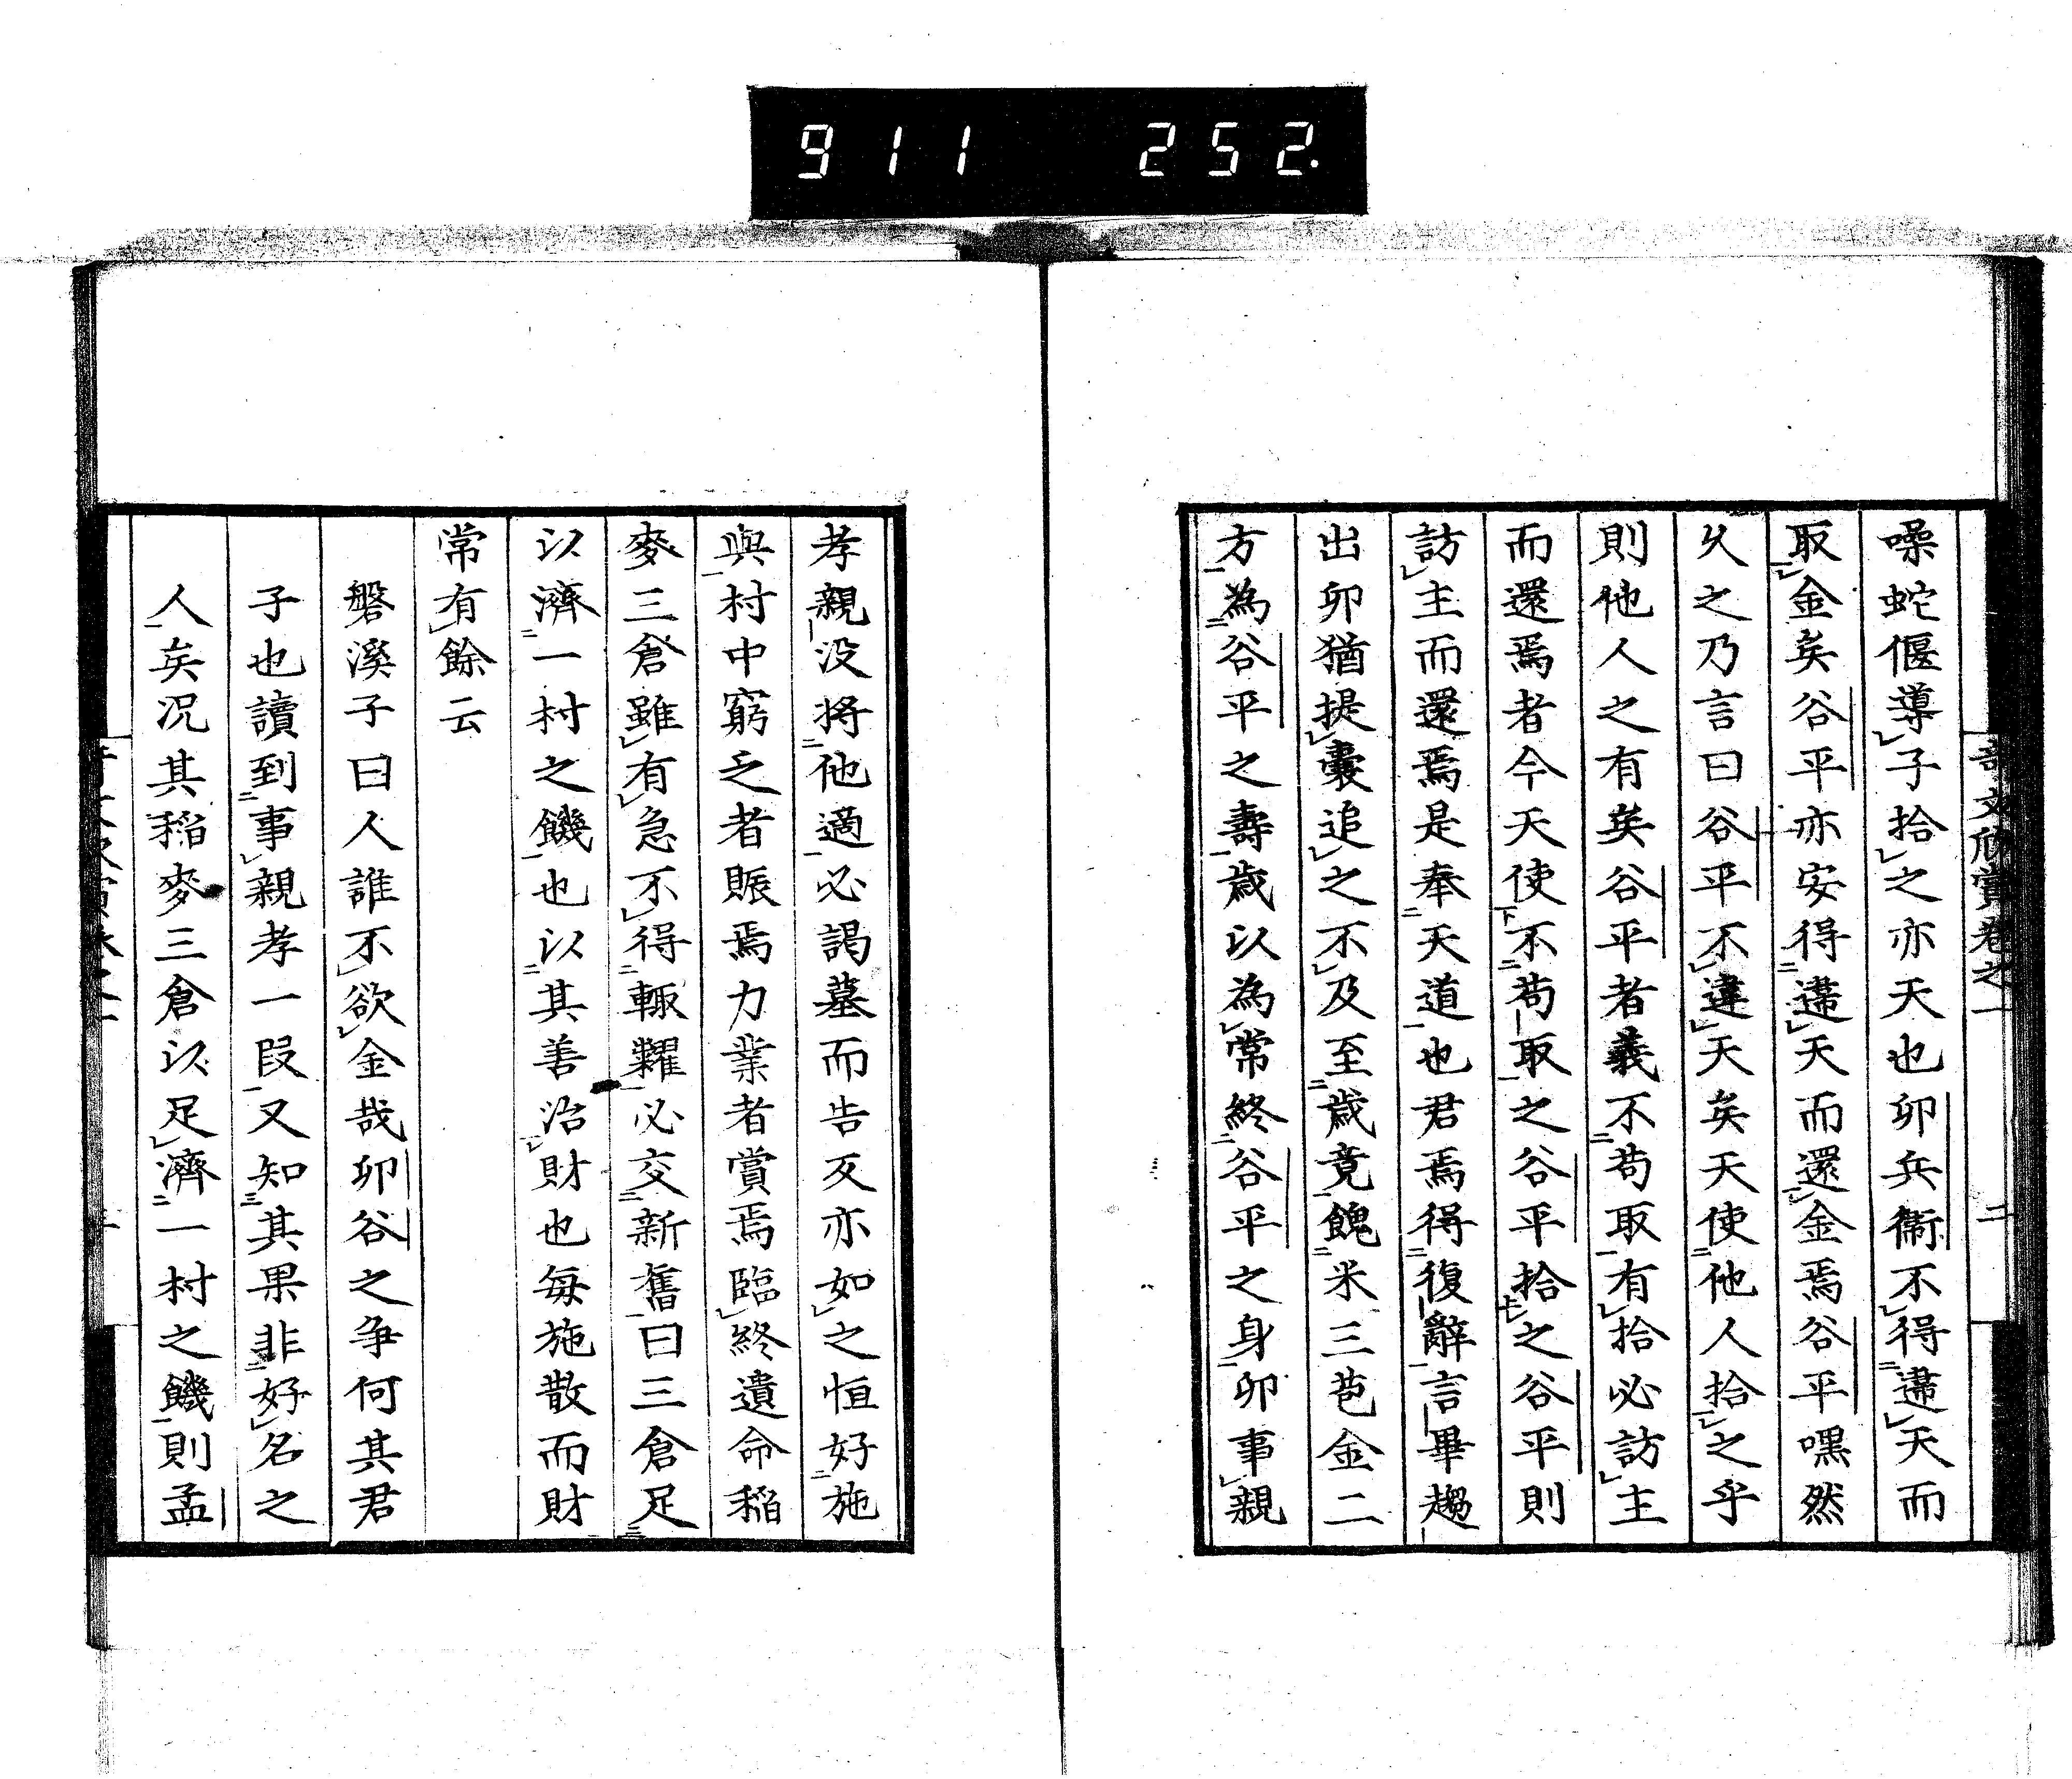 911 252.
奇文欣賞卷之一 二
噪蛇偃導子拾之亦天也卯兵衞不得違天而
取金矣谷平亦安得違天而還金焉谷平嘿然
乆之乃言曰谷平不違天矣天使他人拾之乎
則他人之有矣谷平者義不苟取有拾必訪主
而還焉者今天使不苟取之谷平拾之谷平則
訪主而還焉是奉天道也君焉得復辭言畢趨
出卯猶提囊追之不及至歲竟餽米三苞金二
方為谷平之壽歲以為常終谷平之身卯事親
孝親没将他適必謁墓而告反亦如之恒好施
與村中窮乏者賑焉力業者賞焉臨終遺命稲
麥三倉雖有急不得輙糶必交新舊曰三倉足
以濟一村之饑也以其善治財也每施散而財
常有餘云
磐溪子曰人誰不欲金哉卯谷之争何其君
子也讀到事親孝一段又知其果非好名之
人矣况其稲麥三倉以足濟一村之饑則孟